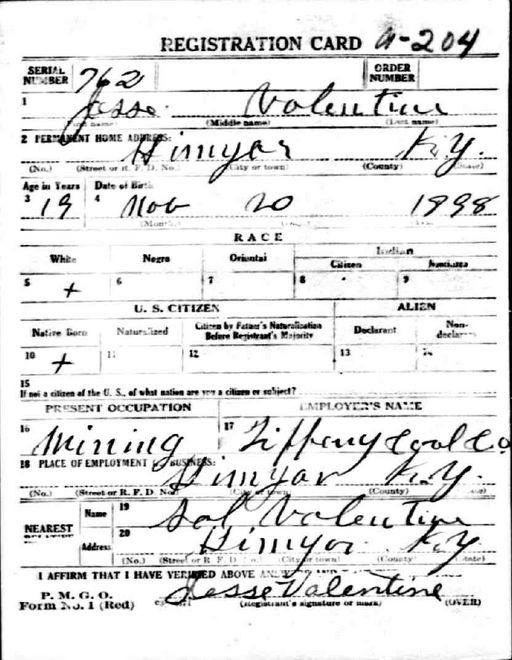 REGISTRATION CARD A-204
SERIAL NUMBER 762 ORDER NUMBER
1 Jesse Valentine
(First name) (Middle name) (Last name)
2 PERMANENT HOME ADDRESS: Himyar Ky.
(No.) (Street or R. F. D. No.) (City or town) (County) (State)
Age in Years Date of Birth
3 19 4 Nov 20 1898
(Month)
RACE
White Negro Oriental Indian
Citizen Noncitizen
5 + 6 7 8 9
U. S. CITIZEN ALIEN
Native Born Naturalized Citizen by Father's Naturalization Before Registrant's Majority Declarant Non-declarant
10 + 11 12 13 14
15
If not a citizen of the U. S., of what nation are you a citizen or subject?
PRESENT OCCUPATION EMPLOYER'S NAME
16 Mining 17 Tiffany Coal Co
18 PLACE OF EMPLOYMENT OR BUSINESS: Himyar Ky.
(No.) (Street or R. F. D. No.) (City or town) (County) (State)
NEAREST Name 19 Sol Valentine
Address 20 Himyar Ky
(No.) (Street or R. F. D. No.) (City or town) (County) (State)
I AFFIRM THAT I HAVE VERIFIED ABOVE
P. M. G. O.
Form No. 1 (Red) Jesse Valentine
(Registrant's signature or mark) (OVER)